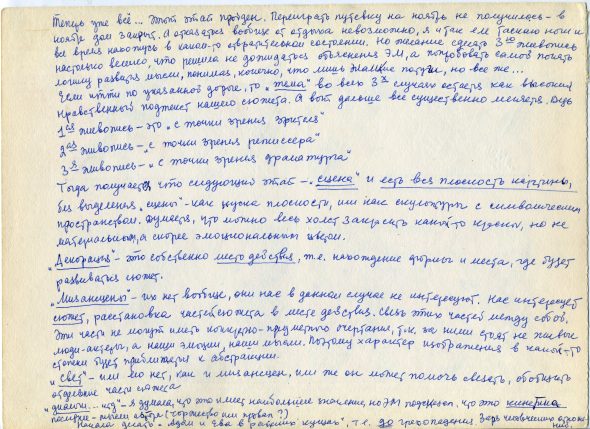 Теперь уже всё... Этот этап пройден. Переиграть путевку на ноябрь не получилось - в
ноябре дом закрыт. А отказаться вообще от отдыха невозможно, я и так еле таскаю ноги и
все время нахожусь в каком-то отвратительном состоянии. Но желание сделать 3ю живопись
настолько велико, что решила не дожидаться объяснения ЭМ, а попробовать самой понять
логику развития мысли, понимая, конечно, что лишь жалкие потуги, но все же...
Если идти по указанной дороге, то "тема" во всех 3х случаях остается как высокий
нравственный подтекст нашего сюжета. А вот дальше всё существенно меняется. Ведь
1ая живопись - это "с точки зрения зрителя"
2ая живопись - "с точки зрения режиссера"
3я живопись - "с точки зрения драматурга"
Тогда получается, что следующий этап - "сцена" и есть вся плоскость картины,
без выделения "сцены" - как куска плоскости, или как скульптуры с символическим
пространством. Думается, что можно весь холст закрасить какой-то краской, но не
материальным, а скорее эмоциональным цветом.
"Декорация" - это собственно место действия, т.е. нахождение формы и места, где будет
развиваться сюжет.
"Мизансцены" - их нет вообще, они нас в данном случае не интересуют. Нас интересует
сюжет, расстановка частей сюжета в месте действия. Связь этих частей между собой.
Эти части не могут иметь конкретно-предметно очертания, т.к. за ними стоят не живые
люди-актеры, а наши эмоции, наши мысли. Поэтому характер изображения в какой-то
степени будет приближаться к абстракции.
"Свет" - или его нет, как и мизансцен, или же он может помочь связать, обобщить
отдельные части сюжета
- я думала, что это имеет наибольшее значение, но ЭМ подсказал, что это кинетика
- мысли автора (торжество или провал?)
Начала делать - "Адам и Ева в райских кущах", т.е. до грехопадения. Заря человечества